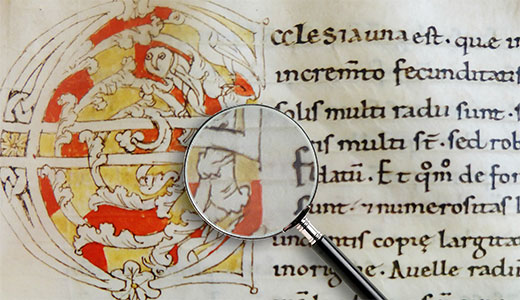 CCLESIAUNA est. que in
increm̄to fecunditatis
solis multi radii sunt. s
is multi st̄. sed rob
datū. Et qm̄ de fon
sunt. & numerositas l
undantis copię largita
inorigine. Auelle radiu